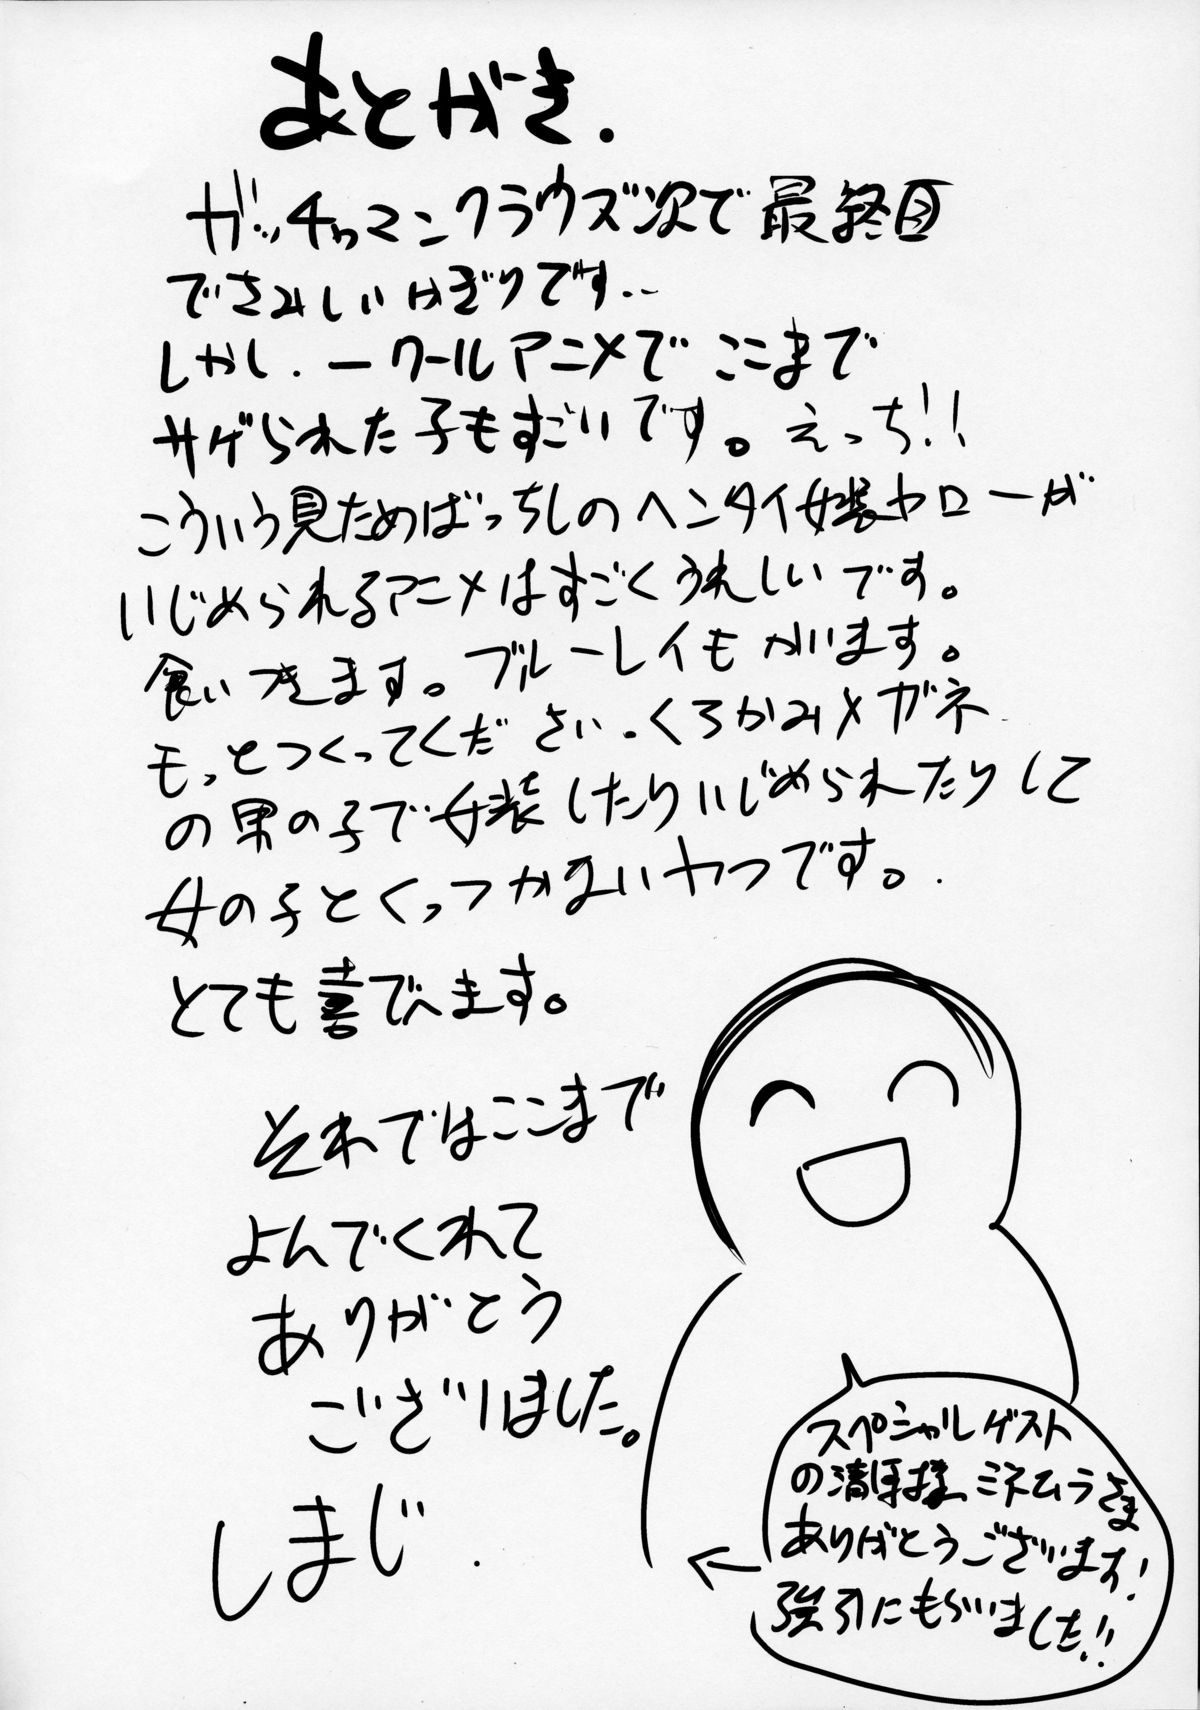 あとがき.
ガッチャマンクラウズ次で最終回
でさみしいかぎりです..
しかし.一クールアニメでここまで
サゲられた子もすごいです。えっち!!
こういう見ためばっちしのヘンタイ女装ヤローが
いじめられるアニメはすごくうれしいです。
食いつきます。ブルーレイもかいます。
もっとつくってください.くろかみメガネ
の男の子で女装したりいじめられたりして
女の子とくっつかないヤツです。.
とても喜びます。
それではここまで
よんでくれて
ありがとう
ございました。
しまじ.
スペシャルゲスト
の清ほ様 ミネムラさま
ありがとうございます!
強引にもらいました!!